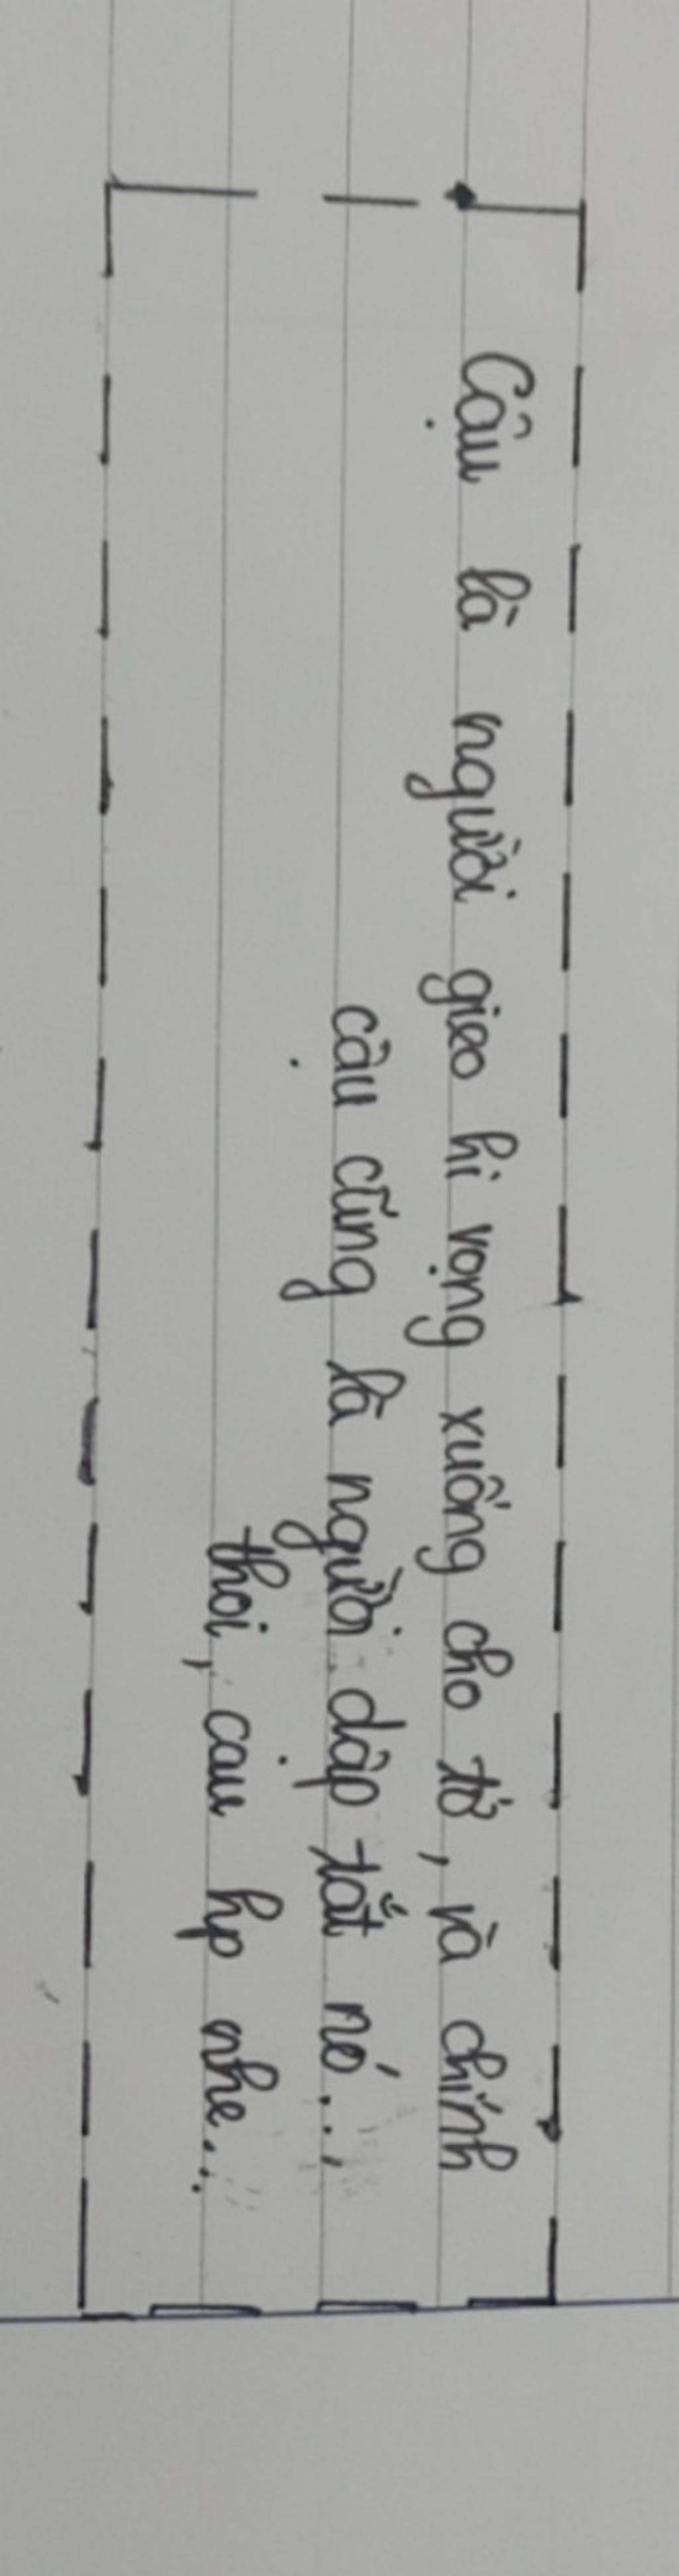 Cậu là người gieo hi vọng xuống cho tớ, và chính
cậu cũng là người dập tắt nó...
thoi, cau hp nhe...